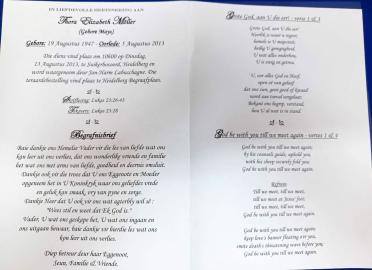 IN LIEFDEVOLLE HERINNERING AAN
Thora Elizabeth Möller
(Gebore Mayo)
Gebore: 19 Augustus 1947 - Oorlede: 5 Augustus 2013
Die diens vind plaas om 10h00 op Dinsdag,
13 Augustus 2013, te Suikerbosrand, Heidelberg en
word waargeneem deur Jan-Harm Labuschagne. Die
teraardebestelling vind plaas te Heidelberg Begraafplaas.
Skriflesing: Lukas 23:26-43
Teksvers: Lukas 23:28
Begrafnisbrief
Baie dankie ons Hemelse Vader vir die les van liefde wat ons
kon leer uit ons verlies, dat ons wonderlike vriende en familie
het wat ons met arms van liefde, goedheid en deernis omsluit.
Dankie ook vir die troos dat U ons Eggenoot en Moeder
opgeneem het in U Koninkryk waar ons geliefdes vrede
en geluk kan smaak, vry van pyn en sorge.
Dankie Heer dat U ook vir ons wat agterbly sê:
"Wees stil en weet dat Ek God is."
Vader, U wat ons geskape het, U wat ons ingaan en
ons uitgaan bewaar, baie dankie vir hierdie les wat ons
kon leer uit ons verlies.
Diep betreur deur haar Eggenoot,
Seun, Familie & Vriende.
Grote God, aan U die eer! - verse 1 & 3
Grote God, aan U die eer!
hemels is U majesteit,
heilig U geregtigheid,
U wat alles onderhou,
God be with you till we meet again - verses 1 & 4
God be with you till we meet again;
by his counsels guide, uphold you,
with his sheep securely fold you:
God be with you till we meet again.
Refrein
Till we meet, till we meet,
till we meet at Jesus' feet,
till we meet, till we meet,
God be with you till we meet again.
God be with you till we meet again;
keep love's banner floating o'er you,
smite death's threatening wave before you;
God be with you till we meet again.